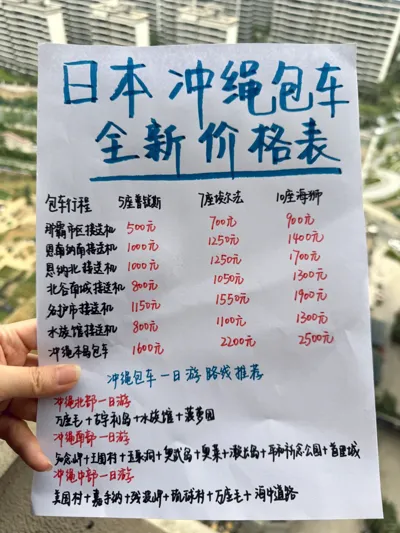 日本冲绳包车
全新价格表
包车行程 5座普锐斯 7座埃尔法 10座海狮
那霸市区接送机 500元 700元 900元
恩纳南接送机 1000元 1250元 1400元
恩纳北接送机 1000元 1250元 1700元
北谷南城接送机 800元 1050元 1300元
名护市接送机 1150元 1550元 1900元
水族馆接送机 800元 1100元 1300元
冲绳本岛包车 1600元 2200元 2500元
冲绳包车一日游路线推荐
冲绳北部一日游
万座毛+古宇利岛+水族馆+菠萝园
冲绳南部一日游
知念岬+王国村+玉泉洞+奥武岛+奥莱+濑长岛+平和祈念公园+首里城
冲绳中部一日游
美国村+嘉手纳+残波岬+琉球村+万座毛+海中道路